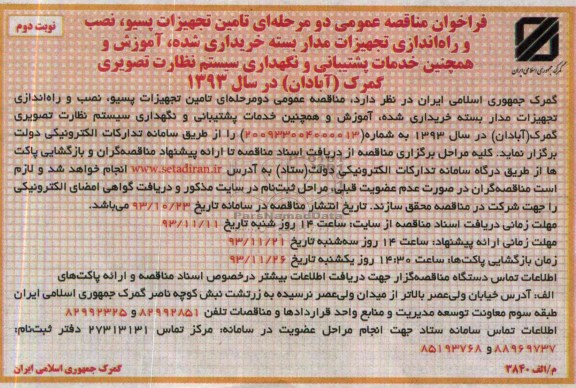 نوبت دوم
فراخوان مناقصه عمومی دو مرحله‌ای تامین تجهیزات پسیو، نصب
و راه‌اندازی تجهیزات مدار بسته خریداری شده، آموزش و
همچنین خدمات پشتیبانی و نگهداری سیستم نظارت تصویری
گمرک (آبادان) در سال ۱۳۹۳
گمرک جمهوری اسلامی ایران
گمرک جمهوری اسلامی ایران در نظر دارد، مناقصه عمومی دومرحله‌ای تامین تجهیزات پسیو، نصب و راه‌اندازی
تجهیزات مدار بسته خریداری شده، آموزش و همچنین خدمات پشتیبانی و نگهداری سیستم نظارت تصویری
گمرک(آبادان) در سال ۱۳۹۳ به شماره(۲۰۰۹۳۳۰۰۴۰۰۰۰۱۳) را از طریق سامانه تدارکات الکترونیکی دولت
برگزار نماید. کلیه مراحل برگزاری مناقصه از دریافت اسناد مناقصه تا ارائه پیشنهاد مناقصه‌گران و بازگشایی پاکت
ها از طریق درگاه سامانه تدارکات الکترونیکی دولت(ستاد) به آدرس www.setadiran.ir انجام خواهد شد و لازم
است مناقصه‌گران در صورت عدم عضویت قبلی، مراحل ثبت‌نام در سایت مذکور و دریافت گواهی امضای الکترونیکی
را جهت شرکت در مناقصه محقق سازند. تاریخ انتشار مناقصه در سامانه تاریخ ۹۳/۱۰/۲۳ می‌باشد.
مهلت زمانی دریافت اسناد مناقصه از سایت: ساعت ۱۴ روز شنبه تاریخ ۹۳/۱۱/۱۱
مهلت زمانی ارائه پیشنهاد: ساعت ۱۴ روز سه‌شنبه تاریخ ۹۳/۱۱/۲۱
زمان بازگشایی پاکت‌ها: ساعت ۱۴:۳۰ روز یکشنبه تاریخ ۹۳/۱۱/۲۶
اطلاعات تماس دستگاه مناقصه‌گزار جهت دریافت اطلاعات بیشتر درخصوص اسناد مناقصه و ارائه پاکت‌های
الف: آدرس خیابان ولی‌عصر بالاتر از میدان ولی‌عصر نرسیده به زرتشت نبش کوچه ناصر گمرک جمهوری اسلامی ایران
طبقه سوم معاونت توسعه مدیریت و منابع واحد قراردادها و مناقصات تلفن ۸۲۹۹۲۸۵۱ و ۸۲۹۹۲۳۲۵
اطلاعات تماس سامانه ستاد جهت انجام مراحل عضویت در سامانه: مرکز تماس ۲۷۳۱۳۱۳۱ دفتر ثبت‌نام:
۸۸۹۶۹۷۳۷ و ۸۵۱۹۳۷۶۸
م/الف ۳۸۴۰
گمرک جمهوری اسلامی ایران
ParsNamadData